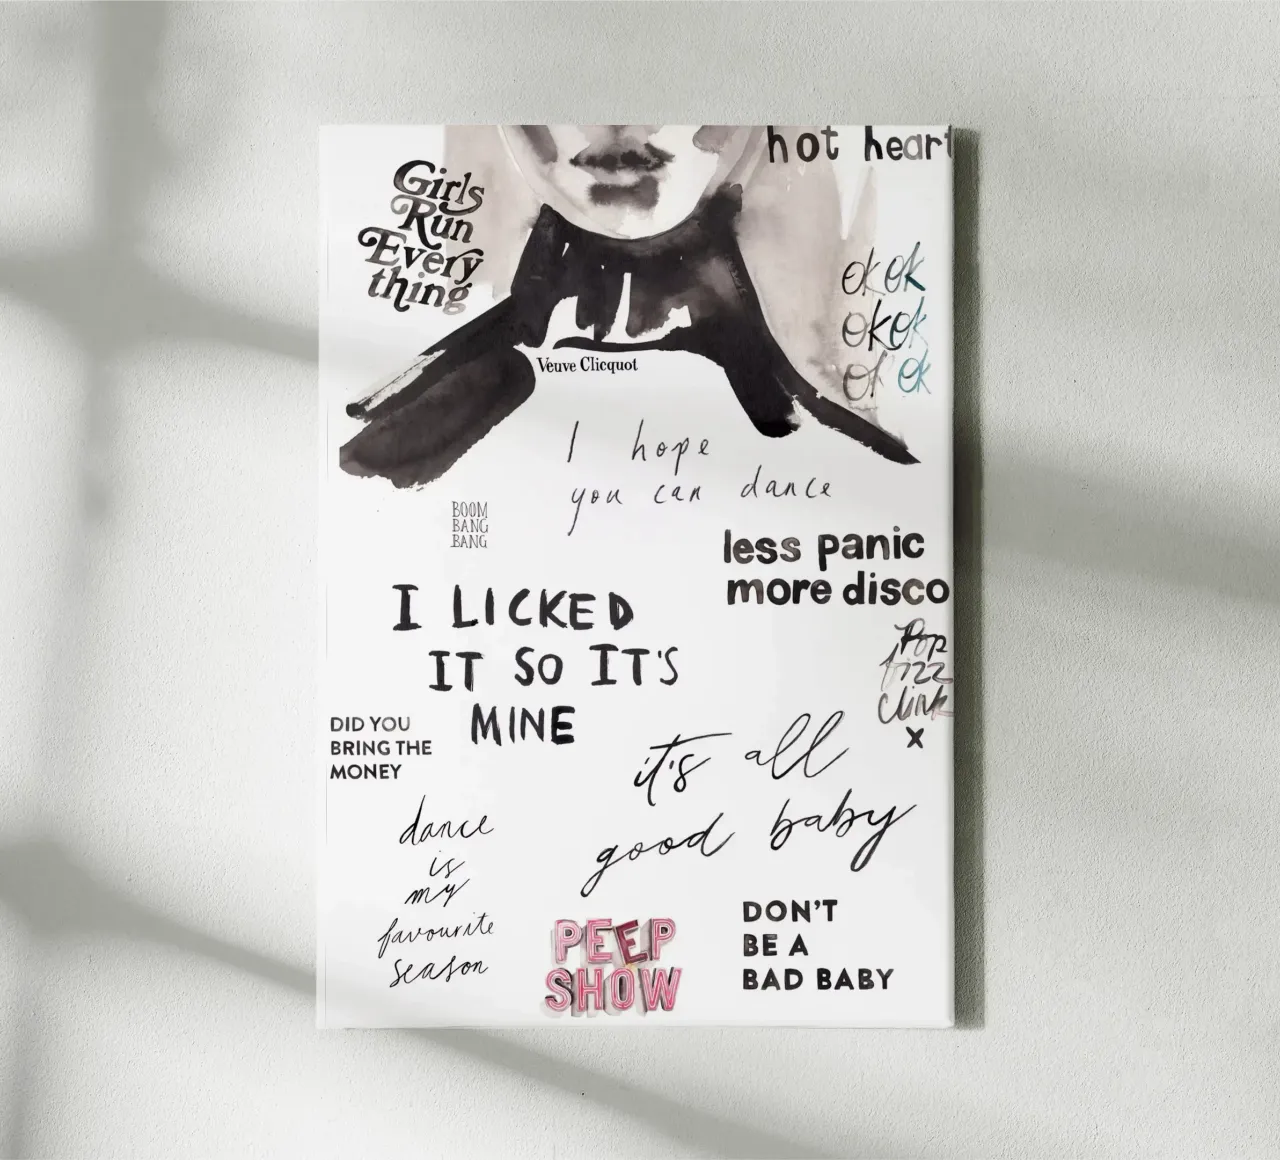 hot heart
Girls
Run
Every
thing
ok ok
ok ok
ok ok
Veuve Clicquot
I hope
you can dance
BOOM
BANG
BANG
less panic
more disco
I LICKED
IT SO IT'S
MINE
Pop
fizz
clink
x
DID YOU
BRING THE
MONEY
it's all
good baby
dance
is
my
favourite
season
PEEP
SHOW
DON'T
BE A
BAD BABY